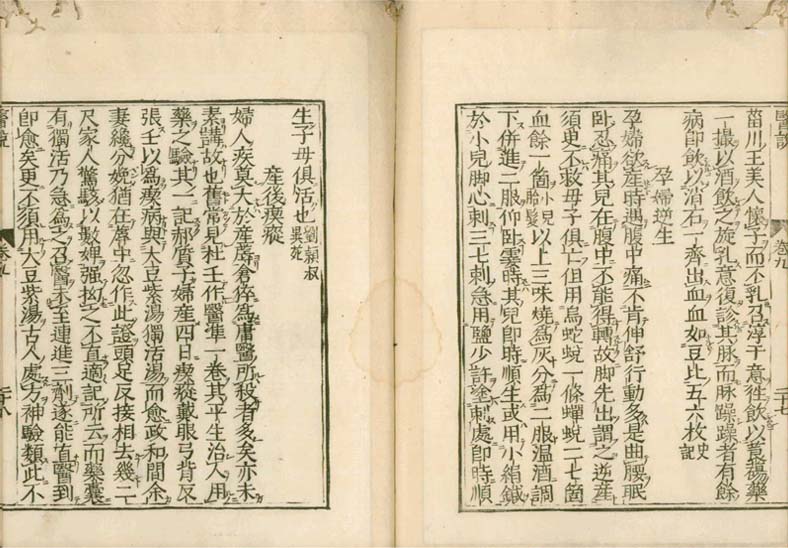 醫說
卷九
二十七
菑川王美人懷子而不乳召淳于意徃飲以莨𦿆藥
一撮以酒飲之旋乳意復診其脉而脉躁躁者有餘
病即飲以消石一齊出血血如豆比五六枚史記
孕婦逆生
孕婦欲産時遇腹中痛不肯伸舒行動多是曲腰眠
臥忍痛其兒在腹中不能得轉故脚先出謂之逆産
須臾不救母子俱亡但用烏蛇蛻一條蟬蛻二七箇
血餘一箇小兒胎髮以上三味燒爲灰分爲二服温酒調
下併進二服仰臥霎時其兒即時順生或用小絹鍼
於小兒脚心刺三七刺急用鹽少許塗刺處即時順
生子母俱活也劉穎叔異苑
産後瘈瘲
婦人疾莫大於産蓐倉猝爲庸醫所殺者多矣亦未
素講故也舊常見杜壬作醫準一卷其平生治人用
藥之驗其一記郝質子婦産四日瘈瘲戴眼弓背反
張壬以爲痙病與大豆紫湯獨活湯而愈政和間余
妻纔分娩猶在蓐中忽作此證頭足反接相去幾二
尺家人驚駭以數婢强拗之不直適記所云而藥囊
有獨活乃急爲之召醫未至連進三劑遂能直醫到
即愈矣更不須用大豆紫湯古人處方神驗類此不
醫說
卷九
二十八